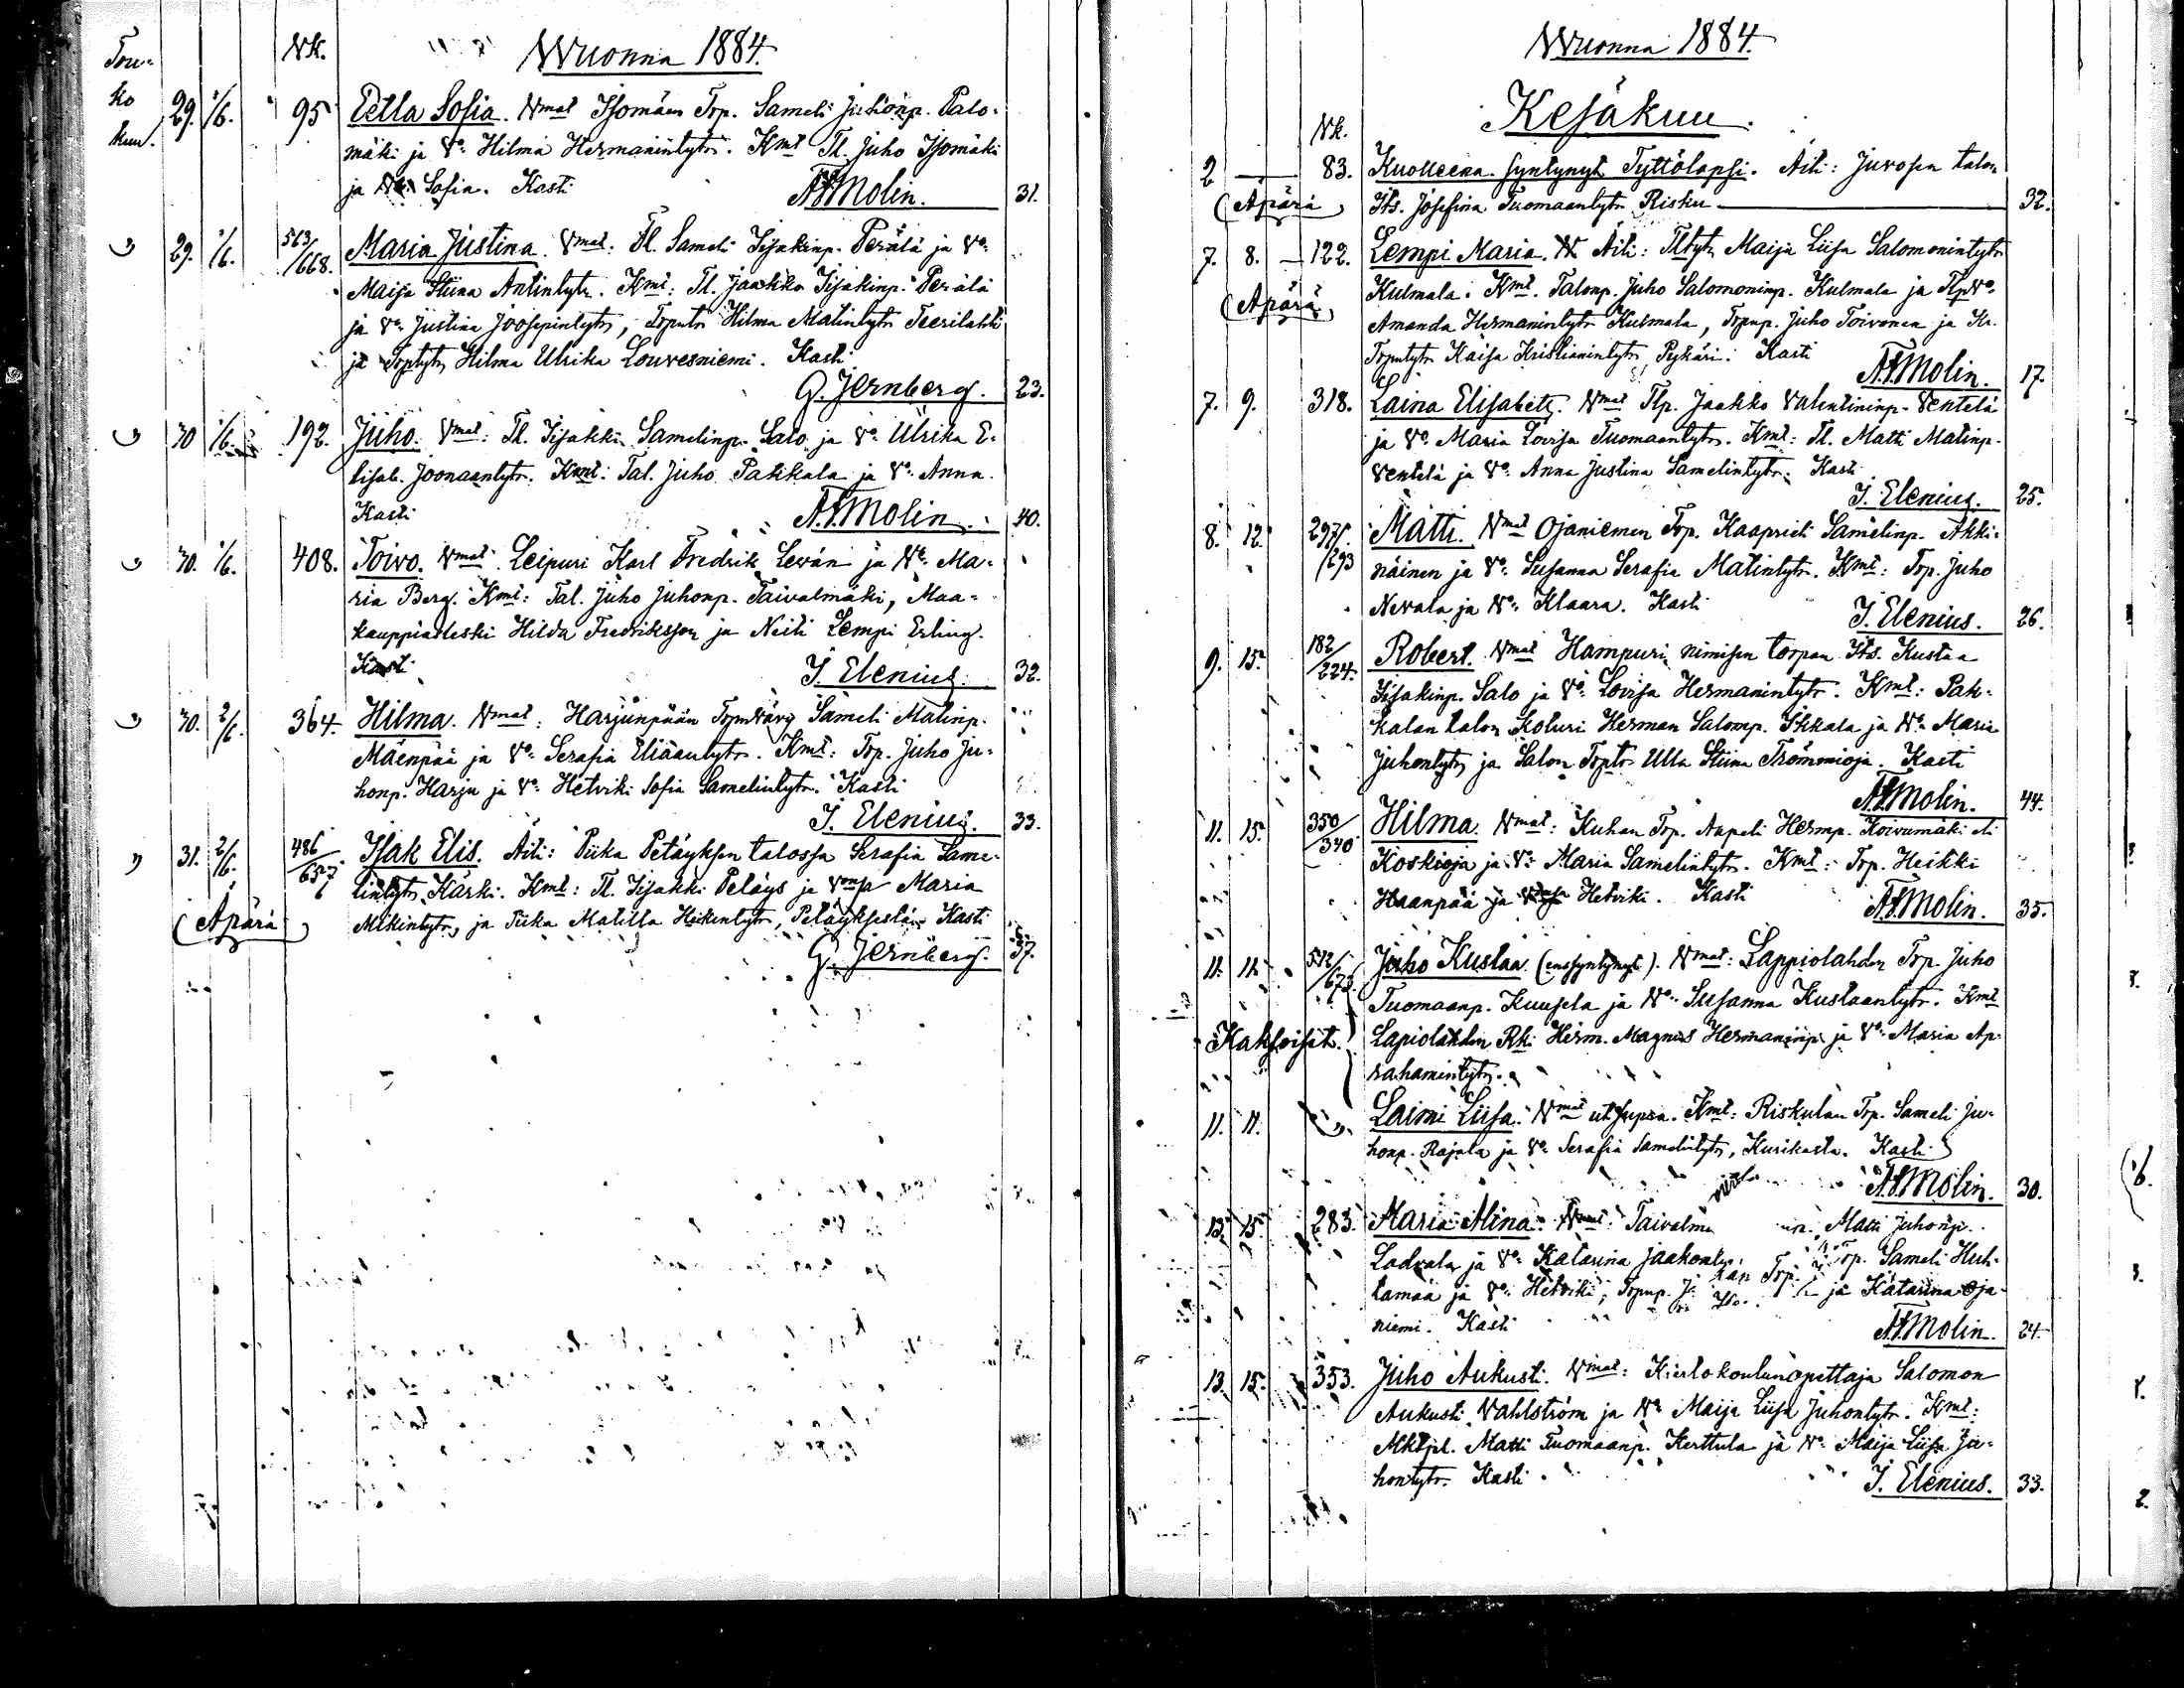 Wuonna 1884.
Tou-
ko
kuu.
Nk.
29. 1/6. 95 Eella Sofia. Vmat Isomäen Trp. Sameli Juhonp. Palo-
mäki ja Vo. Hilma Hermanintytr. Kmt Tl. Juho Isomäki
ja Sofia. Kasti A. F. Molin. 31.
" 29. 1/6. 563/668. Maria Justina. Vmat: Tl. Sameli Iisakinp. Perälä ja Vo.
Maija Stiina Antintytr. Kmt: Tl. Jaakko Iisakinp. Perälä
ja Vo. Justina Joosepintytr, Hilma Matintytr Teerilahti
ja Hilma Ulrika Louvesniemi. Kasti
G. Jernberg. 23.
" 30 1/6. 192. Juho. Vmat: Tl. Iisakki Samelinp. Salo ja Vo. Ulrika E-
lisab. Joonaantytr. Kmt: Tal. Juho Pakkala ja Vo. Anna.
Kasti A. F. Molin. 40.
" 30. 1/6. 408. Toivo. Vmat Leipuri Karl Fredrik Levän ja Vo. Ma-
ria Berg. Kmt: Tal. Juho Juhonp. Taivalmäki, Maa-
kauppiasleski Hilda Fredriksson ja Neiti Lempi Erling.
Kasti I. Elenius. 32.
" 30. 2/6. 364. Hilma. Vmat: Harjunpään Sameli Matinp.
Mäenpää ja Vo. Serafia Eliaantytr. Kmt: Trp. Juho Ju-
honp. Harju ja Vo. Hetviki Sofia Samelintytr. Kasti
I. Elenius. 33.
" 31. 2/6. 486/657 Isak Elis. Äiti: Piika Petäyksen talossa Serafia Same-
lintytr Kärki. Kmt: Tl. Iisakki Petäys ja Maria
Mikintytr, ja Piika Matilta Heikintytr, Petäyksestä. Kasti
(Äpärä)
G. Jernberg. 37.
Wuonna 1884.
Kesäkuu.
Nk.
2 — 83. Kuolleena syntynyt Tyttölapsi. Äiti: Juvosen talon
(Äpärä) Its. Josefina Tuomaantytr Risku 32.
7. 8. — 122. Lempi Maria. Äiti: Tltytr Maija Liisa Salomonintytr
Kulmala. Kmt. Talonp. Juho Salomoninp. Kulmala ja
(Äpärä)
Amanda Hermanintytr Kulmala, Trpnp. Juho Toivonen ja
Kaisa Kristianintytr Pyhäri. Kasti A. F. Molin. 17.
7. 9. 318. Laina Elisabeth. Vmat Tlp. Jaakko Valentininp. Ventelä
ja Vo. Maria Lovisa Tuomaantytr. Kmt: Tl. Matti Matinp.
Ventelä ja Vo. Anna Justina Samelintytr. Kasti
I. Elenius. 25.
8. 12. 297/293 Matti. Vmat Ojaniemen Trp. Kaaprieli Samelinp. Akki-
näinen ja Vo. Susanna Serafia Matintytr. Kmt: Trp. Juho
Nevala ja Vo. Klaara. Kasti I. Elenius. 26.
9. 15. 182/224. Robert. Vmat Hampuri nimisen torpan Its. Kustaa
Iisakinp. Salo ja Vo. Lovisa Hermanintytr. Kmt: Pak-
kalan talon Koluri Herman Salomp. Ikkala ja Vo. Maria
Juhontytr ja Salon Ulla Stiina Trömmioja. Kasti
A. F. Molin. 44.
11. 15. 350/340 Hilma. Vmat: Kuhan Trp. Aapeli Hermp. Koivumäki eli
Koskioja ja Vo. Maria Samelintytr. Kmt: Trp. Heikki
Haanpää ja Hetviki. Kasti A. F. Molin. 35.
11. 11. 512/673. Juho Kustaa (enssyntynyt). Vmat: Lappiolahden Trp. Juho
Tuomaanp. Kuusela ja Vo. Susanna Kustaantytr. Kmt
Kaksoiset. Lapiolahden Herm. Magnus Hermaninp. ja Vo. Maria Ap-
rahamintytr.
11. 11. " Laimi Liisa. Vmat ut supra. Kmt: Riskulan Trp. Sameli Ju-
honp. Rajala ja Vo. Serafia Samelintytr, Kurikasta. Kasti
A. F. Molin. 30.
13. 15. 283. Maria Mina. Vmat: Taivalmä Matti Juhonp.
Ladvala ja Vo. Katarina Jaakontytr. Trp. Sameli Huh-
tamaa ja Vo. Hetviki, Trpnp. ja Katarina Oja-
niemi. Kasti A. F. Molin. 24.
13. 15. 353. Juho Aukusti. Vmat: Kiertokoulunopettaja Salomon
Aukusti Vahlström ja Vo. Maija Liisa Juhontytr. Kmt:
Matti Tuomaanp. Kerttula ja Vo. Maija Liisa Ju-
hontytr. Kasti I. Elenius. 33.